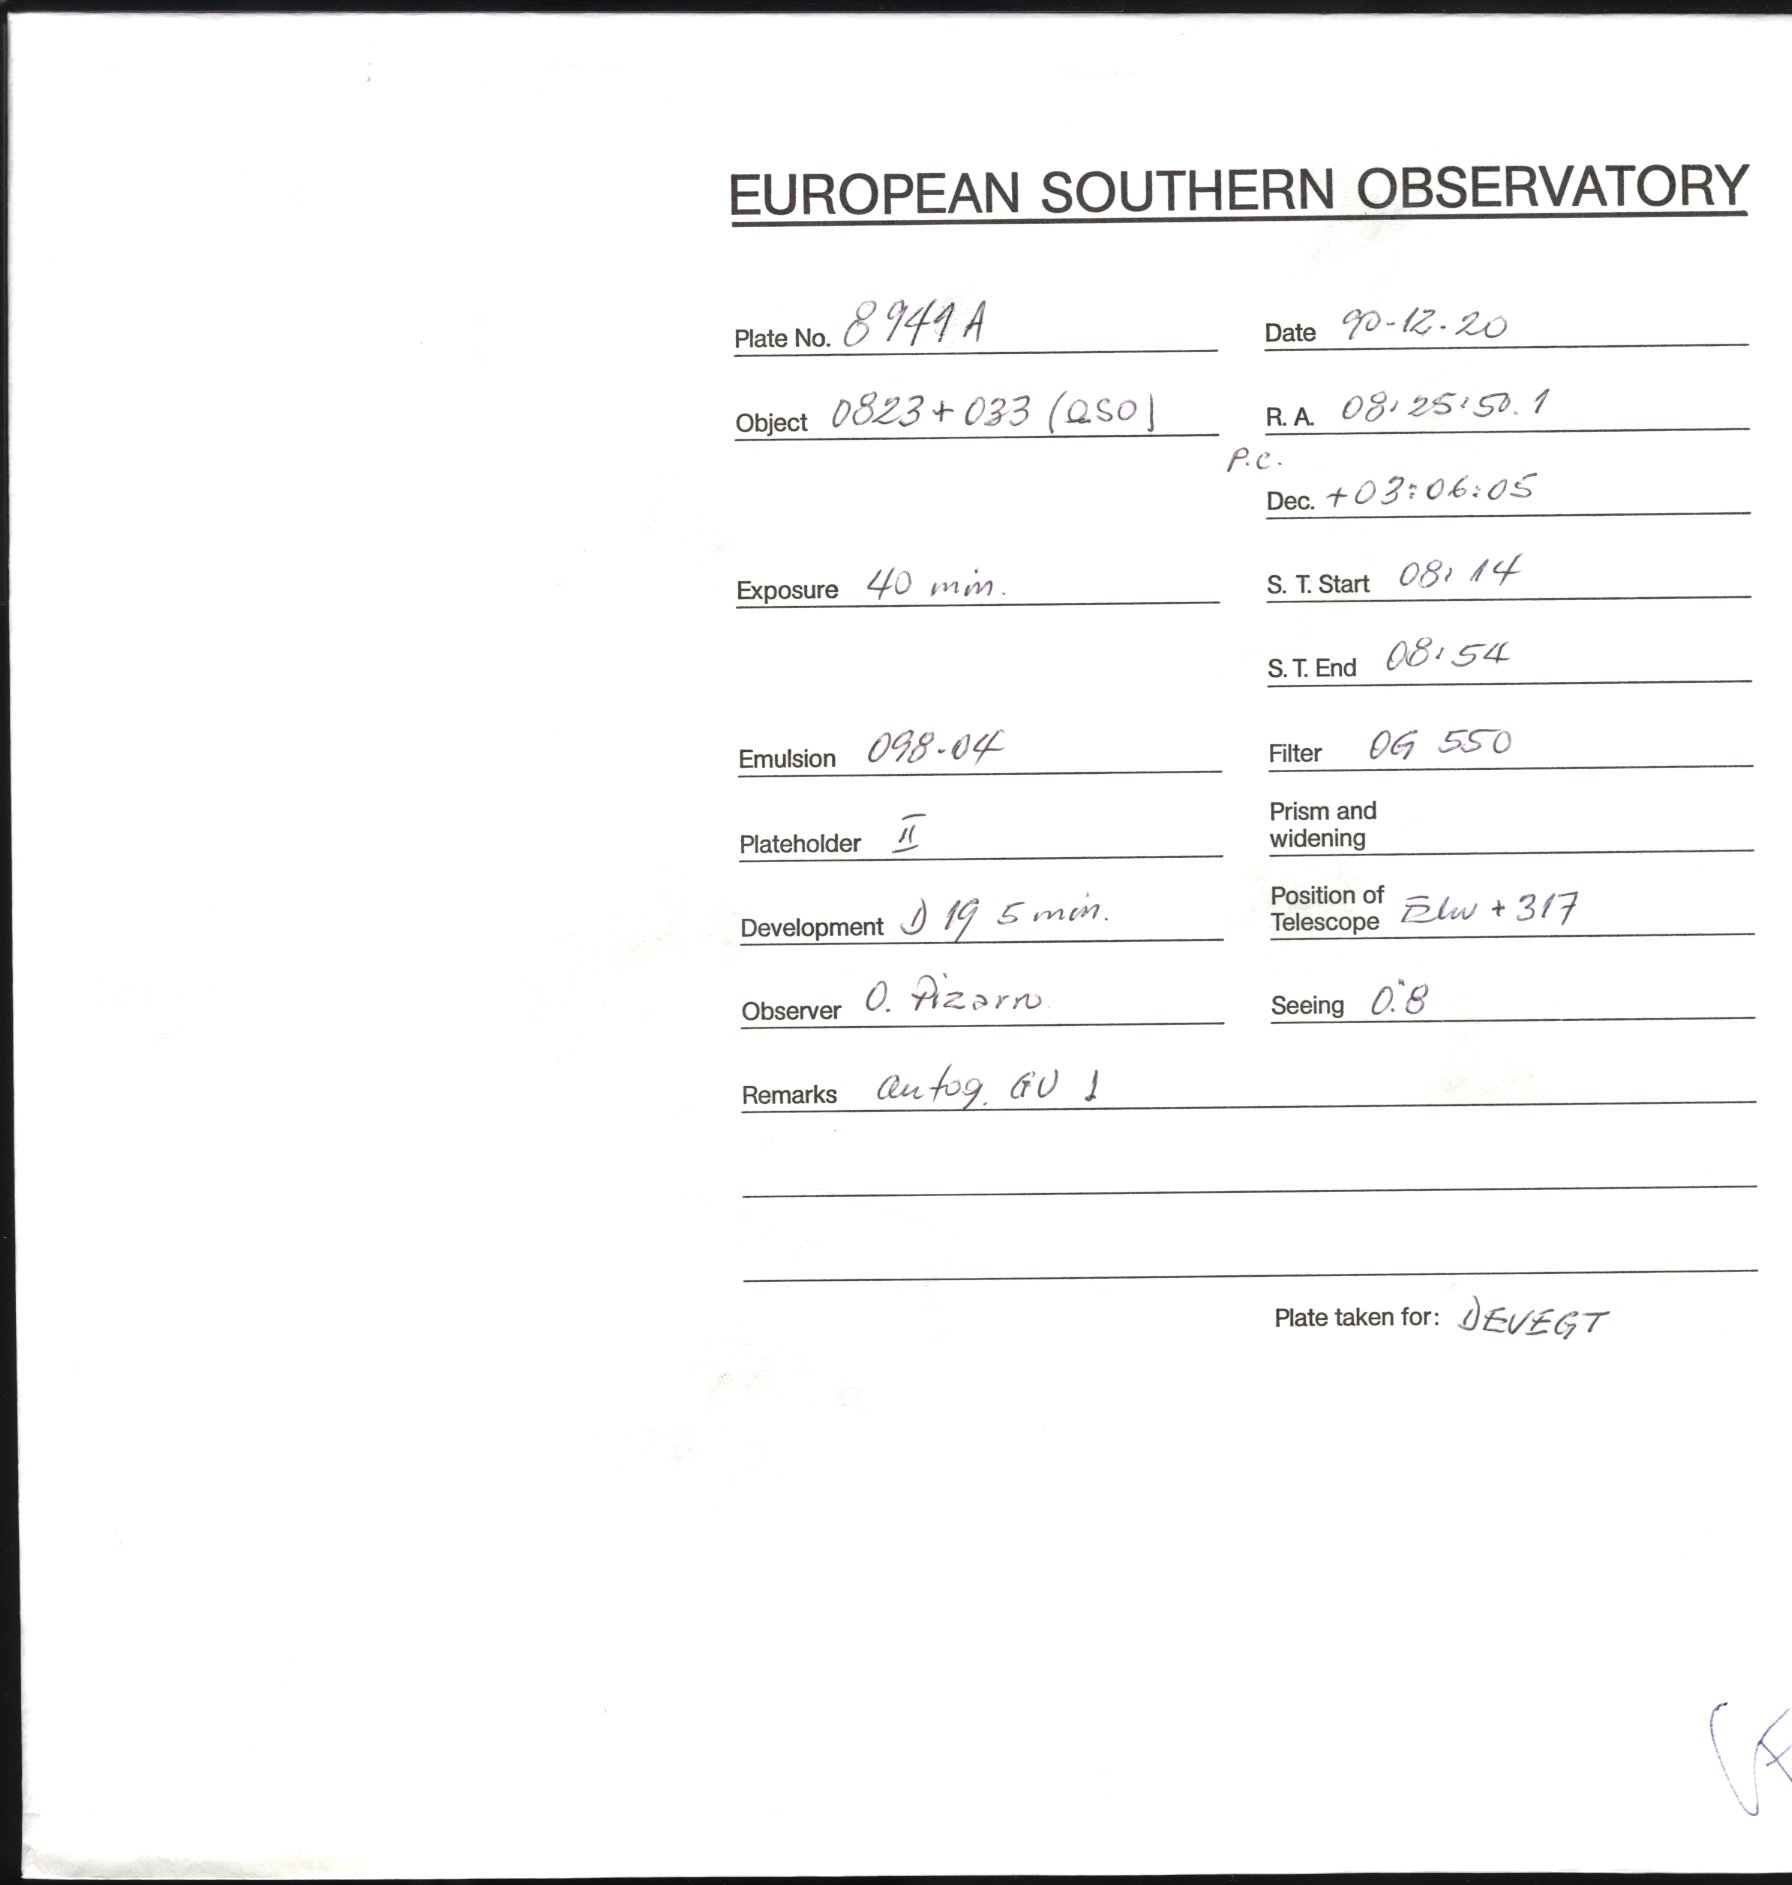 EUROPEAN SOUTHERN OBSERVATORY
Plate No. 8941A Date 90-12-20
Object 0823+033 (QSO) R. A. 08:25:50.1
P.C.
Dec. +03:06:05
Exposure 40 min. S. T. Start 08:14
S. T. End 08:54
Emulsion 098-04 Filter OG 550
Plateholder II Prism and
widening
Development D 19 5 min. Position of
Telescope Elw + 317
Observer O. Pizarro Seeing 0."8
Remarks autog. GU 1
Plate taken for: DEVEGT